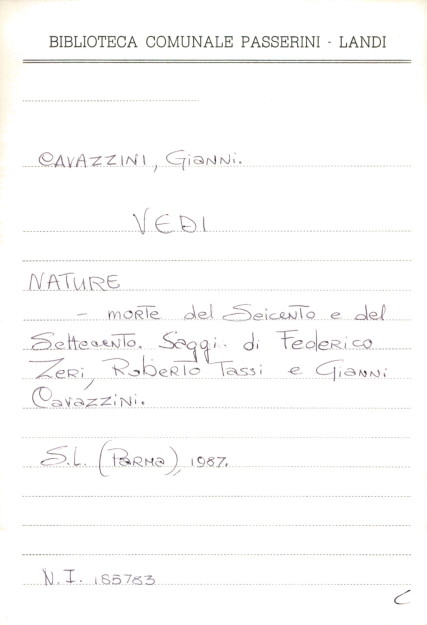 BIBLIOTECA COMUNALE PASSERINI - LANDI
CAVAZZINI, Gianni.
VEDI
NATURE
- morte del Seicento e del
Settecento. Saggi. di Federico
Zeri, Roberto Tassi e Gianni
Cavazzini.
S.L. (Parma), 1987.
N.I. 165783
C